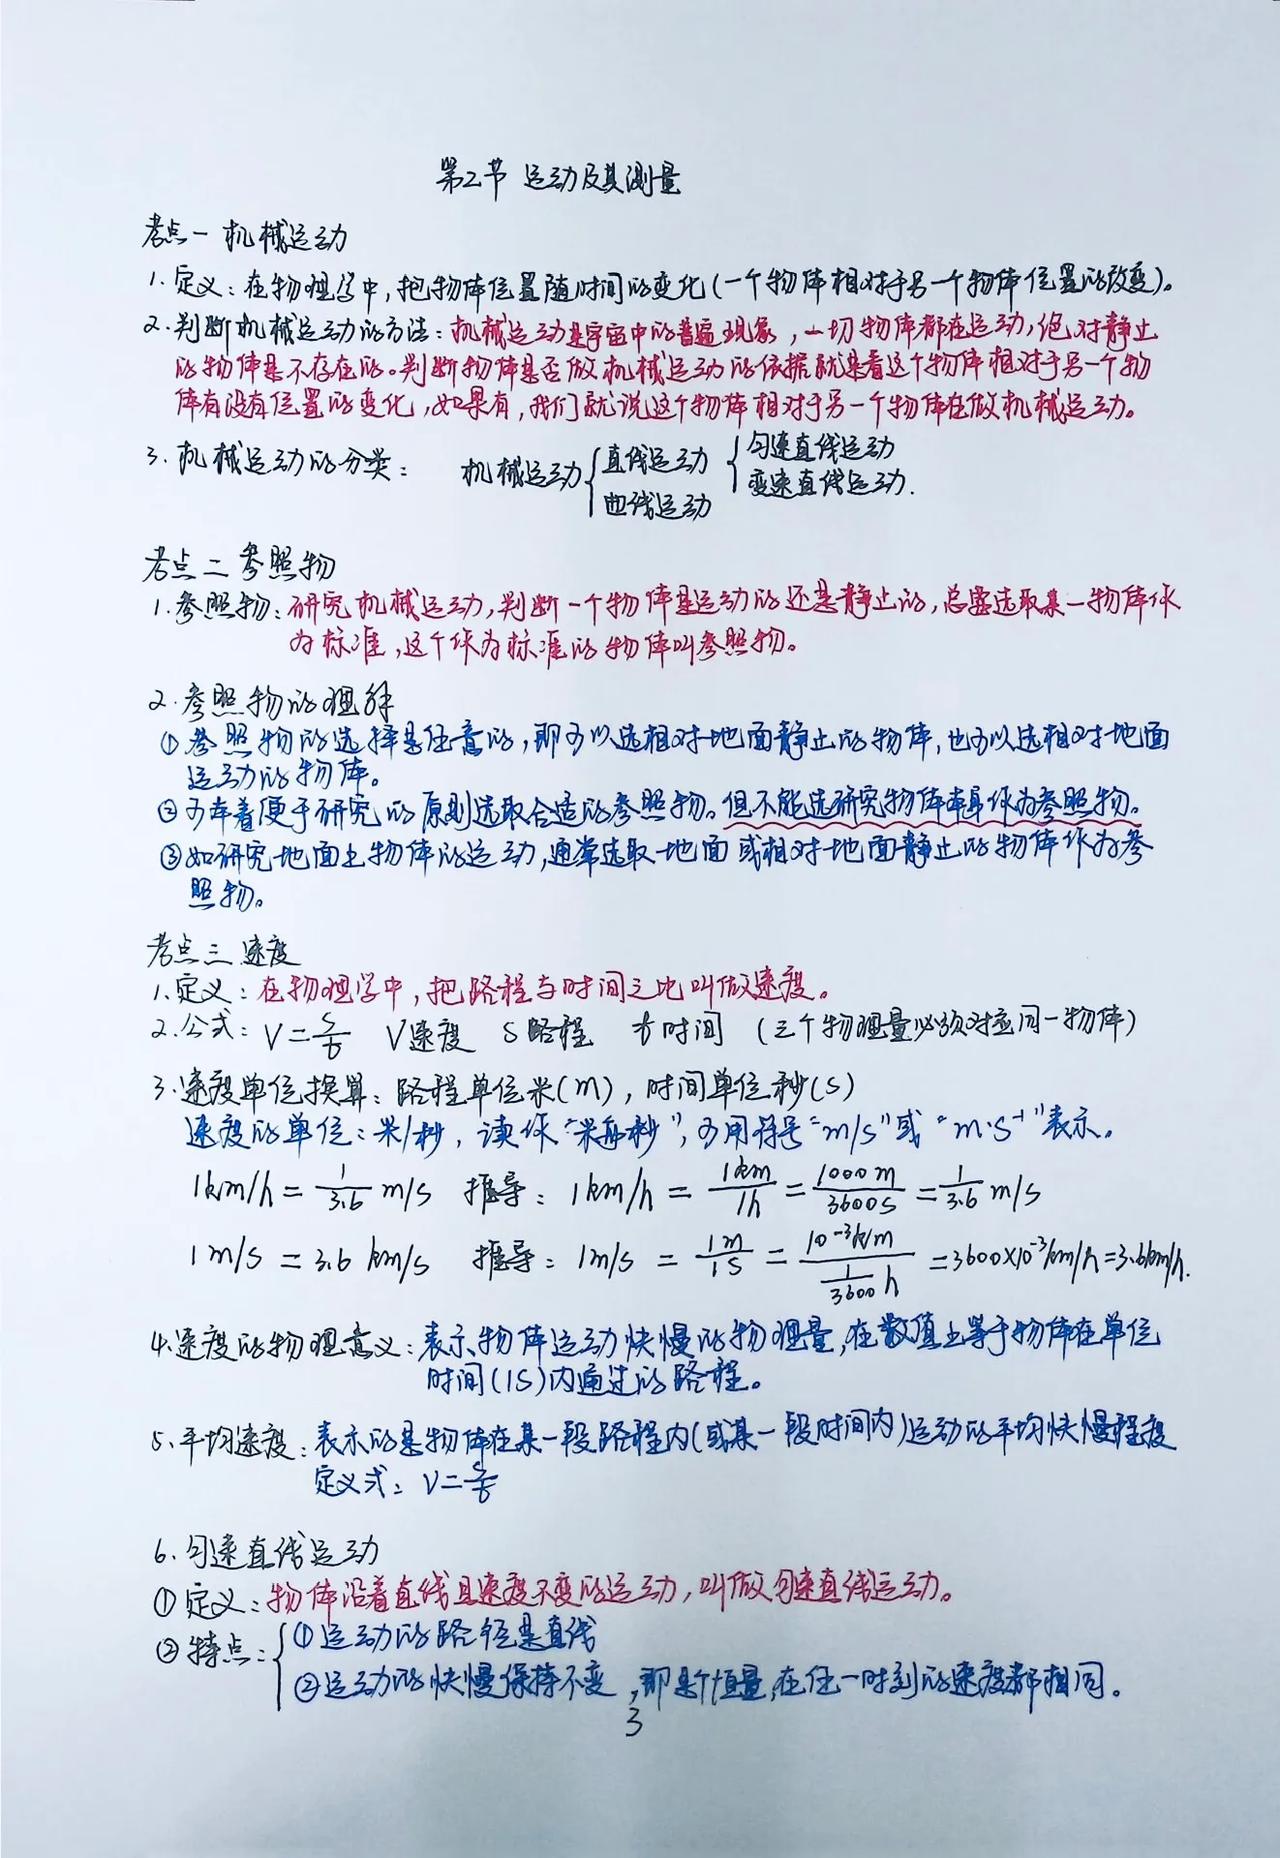 第2节 运动及其测量
考点一 机械运动
1. 定义：在物理学中，把物体位置随时间的变化（一个物体相对于另一个物体位置的改变）。
2. 判断机械运动的方法：机械运动是宇宙中的普遍现象，一切物体都在运动，绝对静止
的物体是不存在的。判断物体是否做机械运动的依据就是看这个物体相对于另一个物
体有没有位置的变化，如果有，我们就说这个物体相对于另一个物体在做机械运动。
3. 机械运动的分类： 机械运动 { 直线运动 { 匀速直线运动
变速直线运动.
曲线运动
考点二 参照物
1. 参照物：研究机械运动，判断一个物体是运动的还是静止的，总要选取某一物体作
为标准，这个作为标准的物体叫参照物。
2. 参照物的理解
① 参照物的选择是任意的，即可以选相对地面静止的物体，也可以选相对地面
运动的物体。
② 可本着便于研究的原则选取合适的参照物。但不能选研究物体本身作为参照物。
③ 如研究地面上物体的运动，通常选取地面或相对地面静止的物体作为参
照物。
考点三 速度
1. 定义：在物理学中，把路程与时间之比叫做速度。
2. 公式：V=s/t V速度 S路程 t时间 （三个物理量必须对应同一物体）
3. 速度单位换算：路程单位米(m)，时间单位秒(s)
速度的单位：米/秒，读作“米每秒”，可用符号“m/s”或“m·s⁻¹”表示。
1km/h = 1/3.6 m/s 推导：1km/h = 1km/1h = 1000m/3600s = 1/3.6 m/s
1m/s = 3.6 km/s 推导：1m/s = 1m/1s = 10⁻³km/(1/3600 h) = 3600×10⁻³km/h = 3.6km/h.
4. 速度的物理意义：表示物体运动快慢的物理量，在数值上等于物体在单位
时间(1s)内通过的路程。
5. 平均速度：表示的是物体在某一段路程内（或某一段时间内）运动的平均快慢程度
定义式：V=s/t
6. 匀速直线运动
① 定义：物体沿着直线且速度不变的运动，叫做匀速直线运动。
② 特点：{ ① 运动的路径是直线
② 运动的快慢保持不变，即是个恒量，在任一时刻的速度都相同。
3